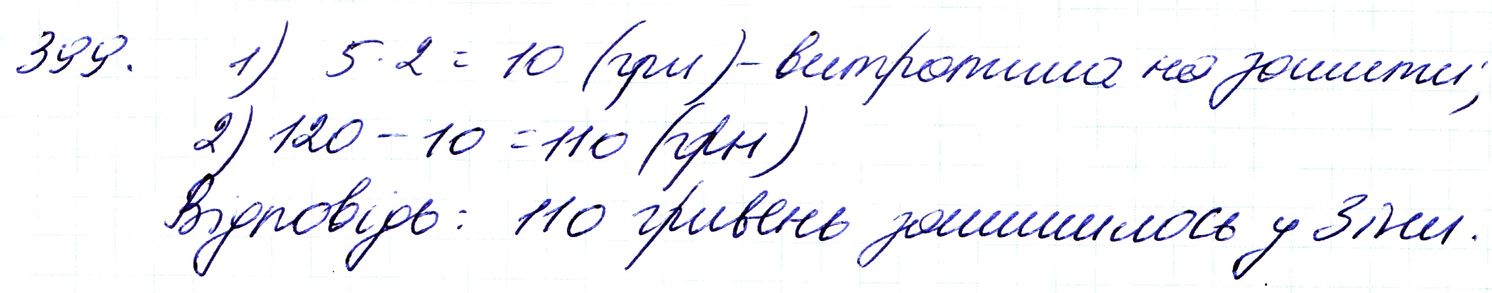 399. 1) 5·2=10 (грн) – витратила на зошити;
2) 120–10=110 (грн)
Відповідь: 110 гривень залишилось у Зіни.